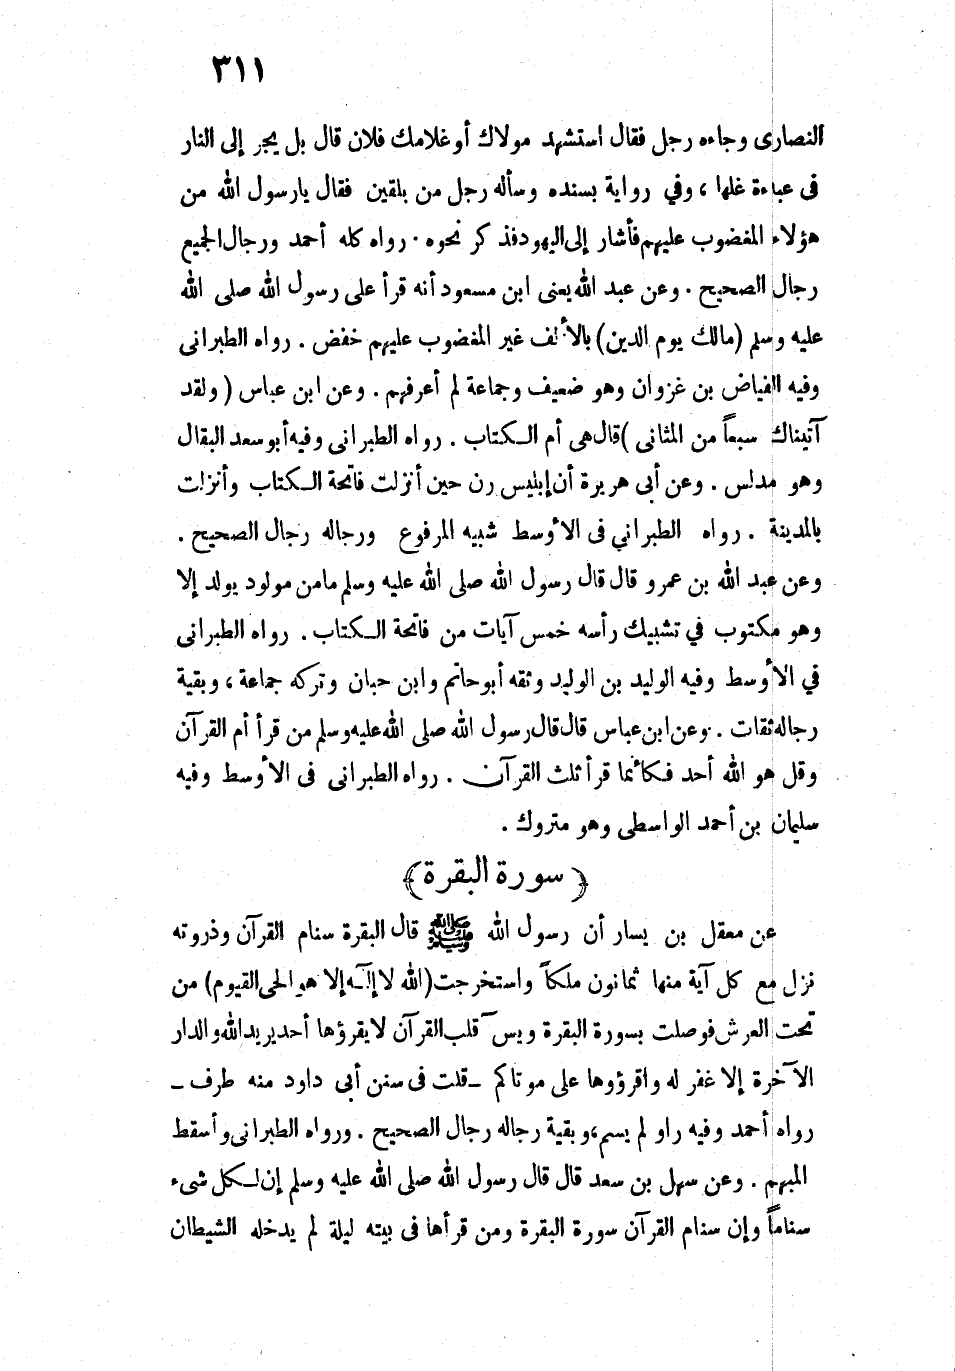 ٣١١
النصارى وجاءه رجل فقال استشهد مولاك أو غلامك فلان قال بل يجر إلى النار
فى عباءة غلها ، وفي رواية بسنده وسأله رجل من بلقين فقال يارسول الله من
هؤلاء المغضوب عليهم فأشار إلى اليهود فذكر نحوه . رواه كله أحمد ورجال الجميع
رجال الصحيح . وعن عبد الله يعنى ابن مسعود أنه قرأ على رسول الله صلى الله
عليه وسلم (مالك يوم الدين) بالألف غير المغضوب عليهم خفض . رواه الطبرانى
وفيه الفياض بن غزوان وهو ضعيف وجماعة لم أعرفهم . وعن ابن عباس ( ولقد
آتيناك سبعاً من المثانى ) قال هى أم الكتاب . رواه الطبرانى وفيه أبو سعد البقال
وهو مدلس . وعن أبى هريرة أن إبليس رن حين أنزلت فاتحة الكتاب وأنزلت
بالمدينة . رواه الطبراني فى الأوسط شبيه المرفوع ورجاله رجال الصحيح .
وعن عبد الله بن عمرو قال قال رسول الله صلى الله عليه وسلم مامن مولود يولد إلا
وهو مكتوب في تشبيك رأسه خمس آيات من فاتحة الكتاب . رواه الطبرانى
في الأوسط وفيه الوليد بن الوليد وثقه أبو حاتم وابن حبان وتركه جماعة ، وبقية
رجاله ثقات . وعن ابن عباس قال قال رسول الله صلى الله عليه وسلم من قرأ أم القرآن
وقل هو الله أحد فكأنما قرأ ثلث القرآن . رواه الطبرانى فى الأوسط وفيه
سليمان بن أحمد الواسطى وهو متروك .
﴿ سورة البقرة ﴾
عن معقل بن يسار أن رسول الله ﷺ قال البقرة سنام القرآن وذروته
نزل مع كل آية منها ثمانون ملكاً واستخرجت (الله لا إله إلا هو الحى القيوم) من
تحت العرش فوصلت بسورة البقرة ويس قلب القرآن لا يقرؤها أحد يريد الله والدار
الآخرة إلا غفر له واقرؤوها على موتاكم ــ قلت فى سنن أبى داود منه طرف ــ
رواه أحمد وفيه راو لم يسم، وبقية رجاله رجال الصحيح . ورواه الطبرانى وأسقط
المبهم . وعن سهل بن سعد قال قال رسول الله صلى الله عليه وسلم إن لكل شىء
سناماً وإن سنام القرآن سورة البقرة ومن قرأها فى بيته ليلة لم يدخله الشيطان